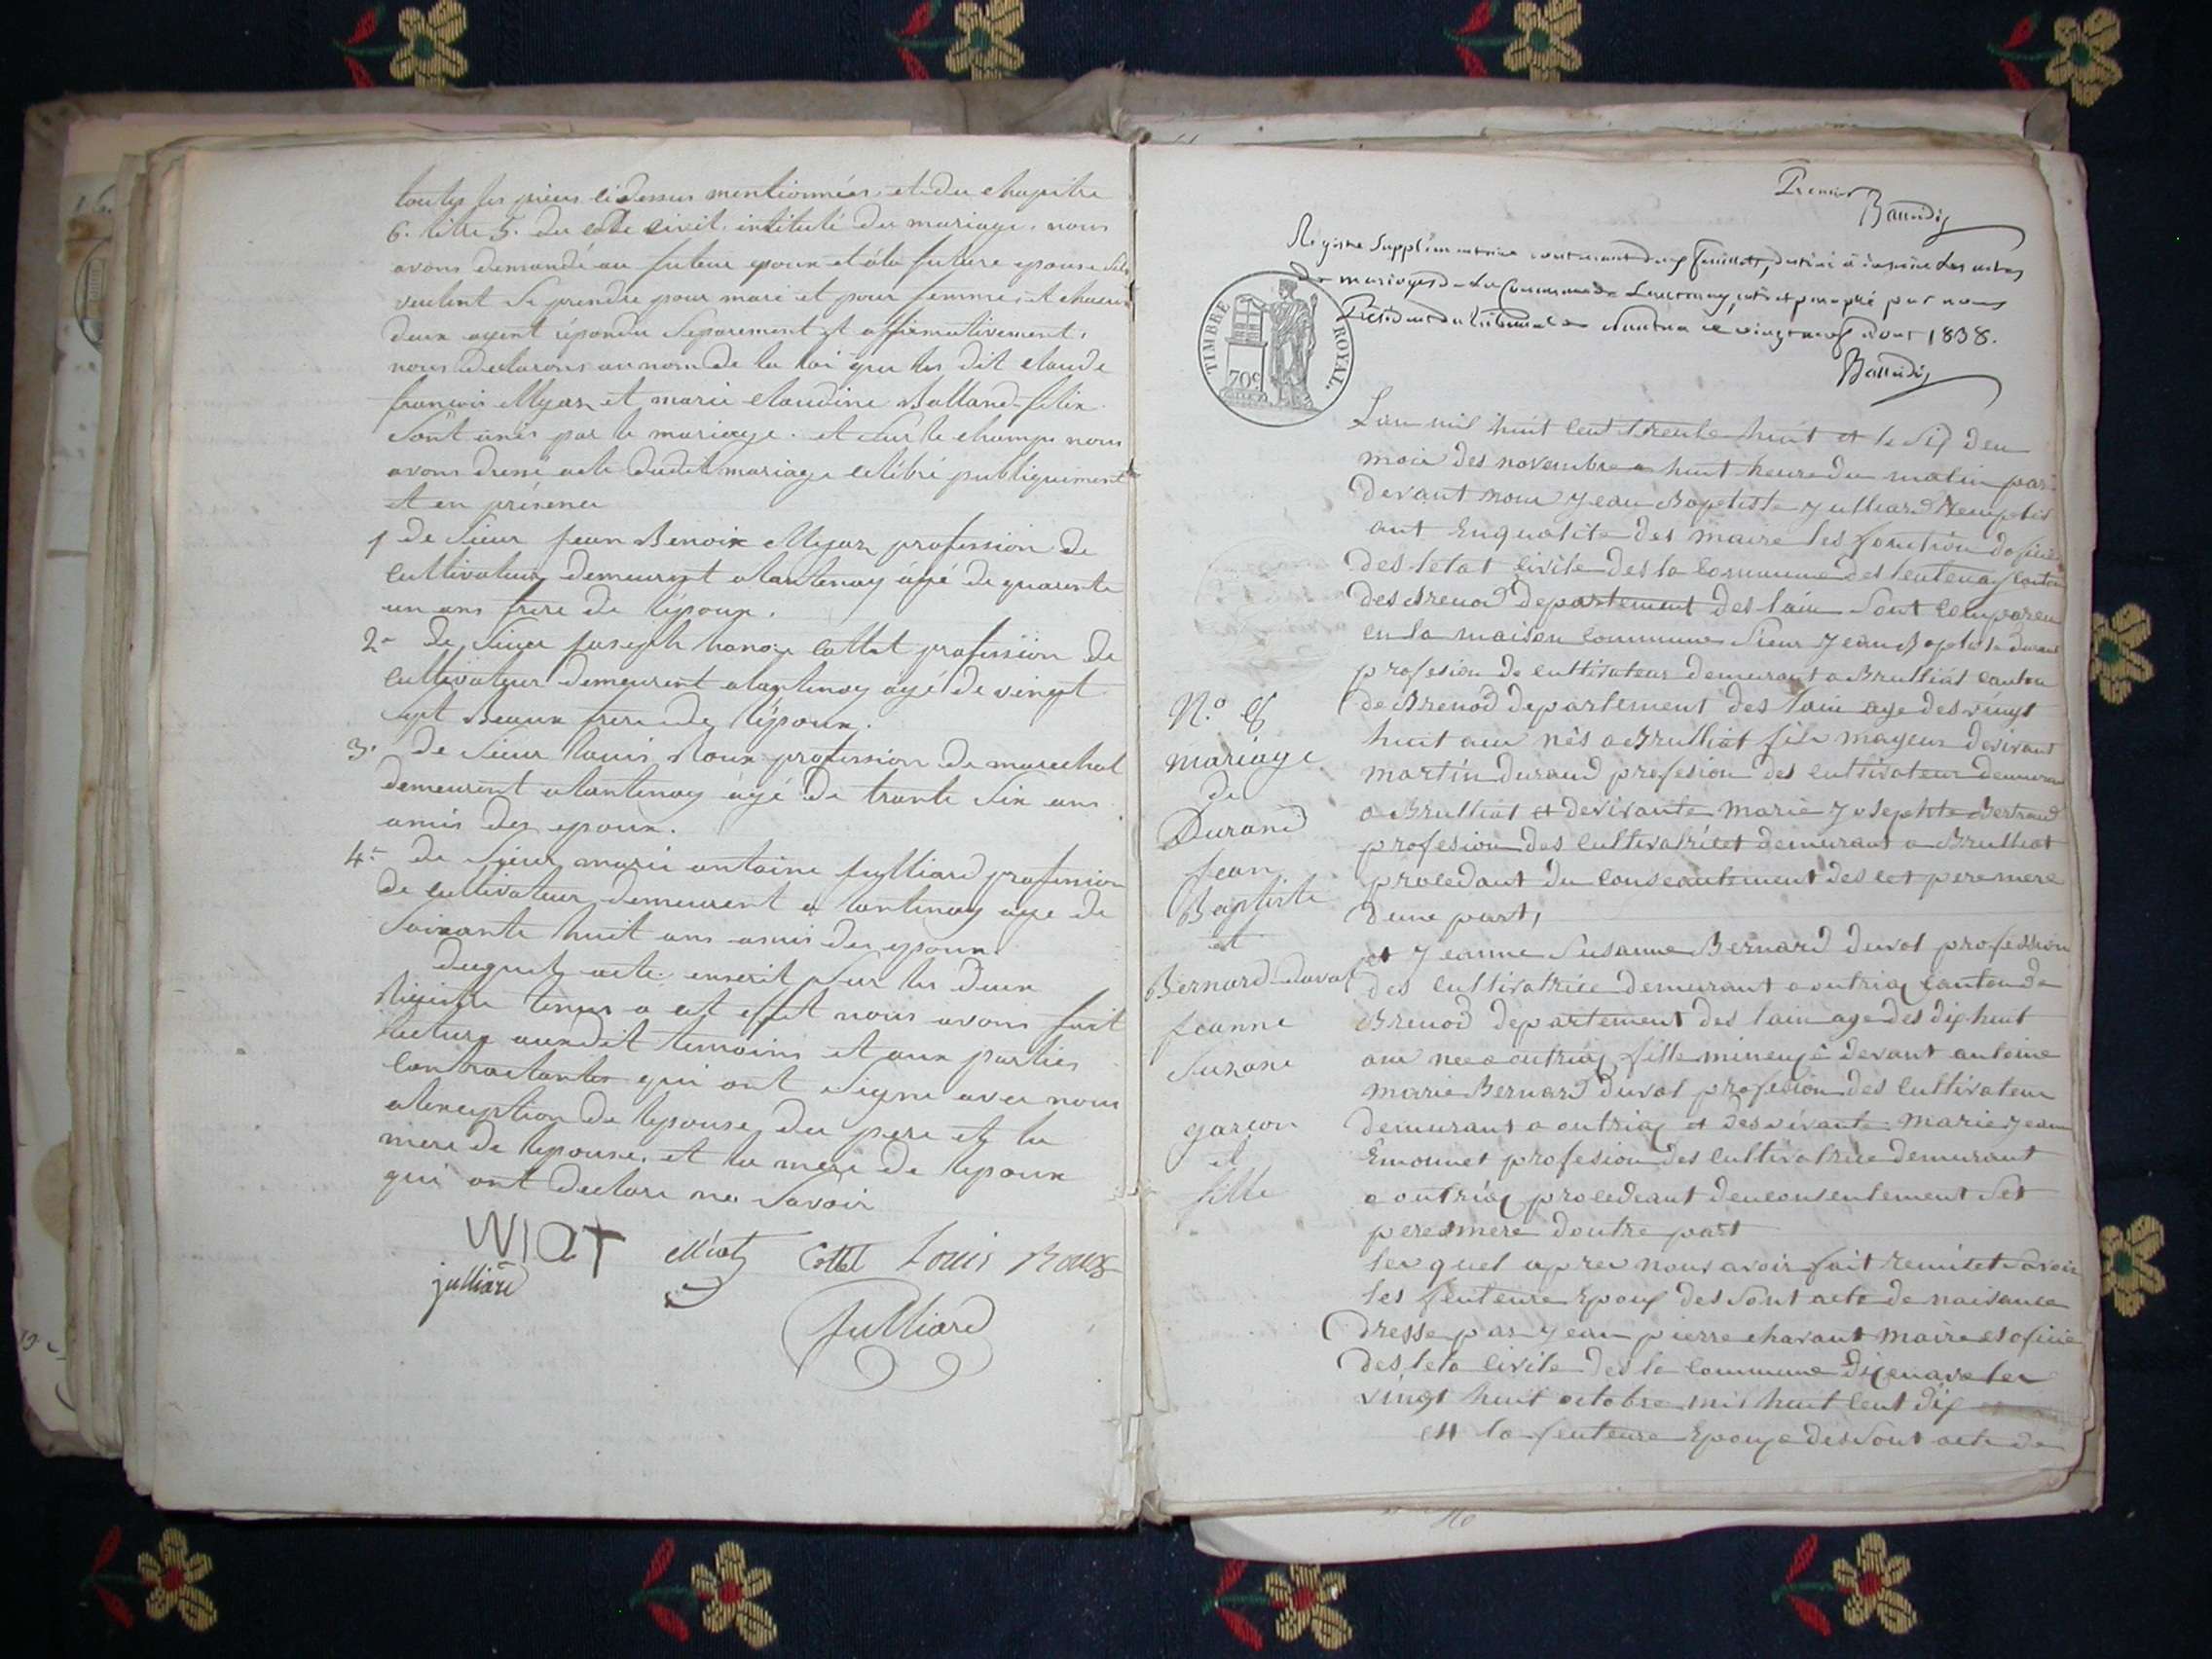 toutes les pieces cidessus mentionnées et du chapitre
6. titre 5. du code civil intitulé du mariage. nous
avons demandé au futeur epoux et àla future epouse
veulent se prendre pour mari et pour femme, et chacun
deux ayent répondu Separement et affirmativement,
nous declarons au nom de la loi que les dit claude
françois Myar et marie claudine Balland-félix
Sont unis par le mariage. et Sur le champs nous
avons dressé acte dudit mariage célébré publiquement
et en présence
1 de Sieur Jean Benoix Myar profession de
cultivateur demeurent a lantenay âgé de quarente
un ans frere de l'époux.
2 de Sieur Joseph cottet profession de
cultivateur demeurent a lantenay agé de vingt
sept Beaux frere de l'époux.
3. de Sieur louis Roux profession de marechal
demeurent a lantenay âgé de trante Six ans
amis des epoux.
4 de Sieur marie antoine Julliard profession
de cultivateur demeurent a lantenay age de
Soixante huit ans amis des epoux
duquel acte inscrit Sur les deux
Registre tenus a cet effet nous avons fait
lecture auxdit temoins et aux parties
contractantes qui ont Signe avec nous
alexception de lepouse, du pere et la
mere de lepouse, et la mere de lepoux
qui ont declare ne Savoir
WIOT Cottet Louis Roux
julliard
Julliard
Premier
Registre Supplémentaire contenant deux feuillets, destiné à inscrire les actes
de mariages de la Commune de Lantenay, coté et paraphé par nous
Président du tribunal de Nantua le vingt neuf aout 1838.
TIMBRE ROYAL.
70c
Lan mil huit cent trente huit et le six deu
moies des novembre a huit heure du matin par
devant nous Jean Baptiste Julliard Remplis
ant Enqualite des maire les fonction doficie
des letat civile des la commune des lentenay canton
des Brenod departement des lain Sont comparen
en la maison commune Sieur Jean Baptiste durand
profesion de cultivateur demurant a Brulliat canton
de Brenod departement des lain age des vingt
huit ans nés a Brulliat fils mageur devivant
martin durand profesion des cultivateur demuran
a Brulliat et devivante marie Josephte Bertrand
profesion des cultivatrice demurant a Brulliat
procedant du conseantement des cet pere mere
dune part,
et Jeanne Susanne Bernard duvol profession
des cultivatrice demurant a outriaz canton de
Brenod departement des lain age des dix huit
ans nee a outriaz fille mineuse devant antoine
marie Bernard duvol profesion des cultivateur
demurant a outriaz et desvivante marie jean
Emonnet profesion des cultivatrice demurant
a outriaz procedeant deuconsentement Set
pere mere doutre part
lesquel apres nous avoir fait remitet Savoir
les feuteure Epoux des Sont acte de naisance
dresse par jean pierre chavant maire et oficie
des leta civile des la commune di
vingt huit octobre mil huit cent dix
ett la feuteure Epouse des Sont acte de
N.o 8
mariage
de
Durand
Jean
Baptiste
et
Bernard duval
Jeanne
Suzane
garcon
et
fille